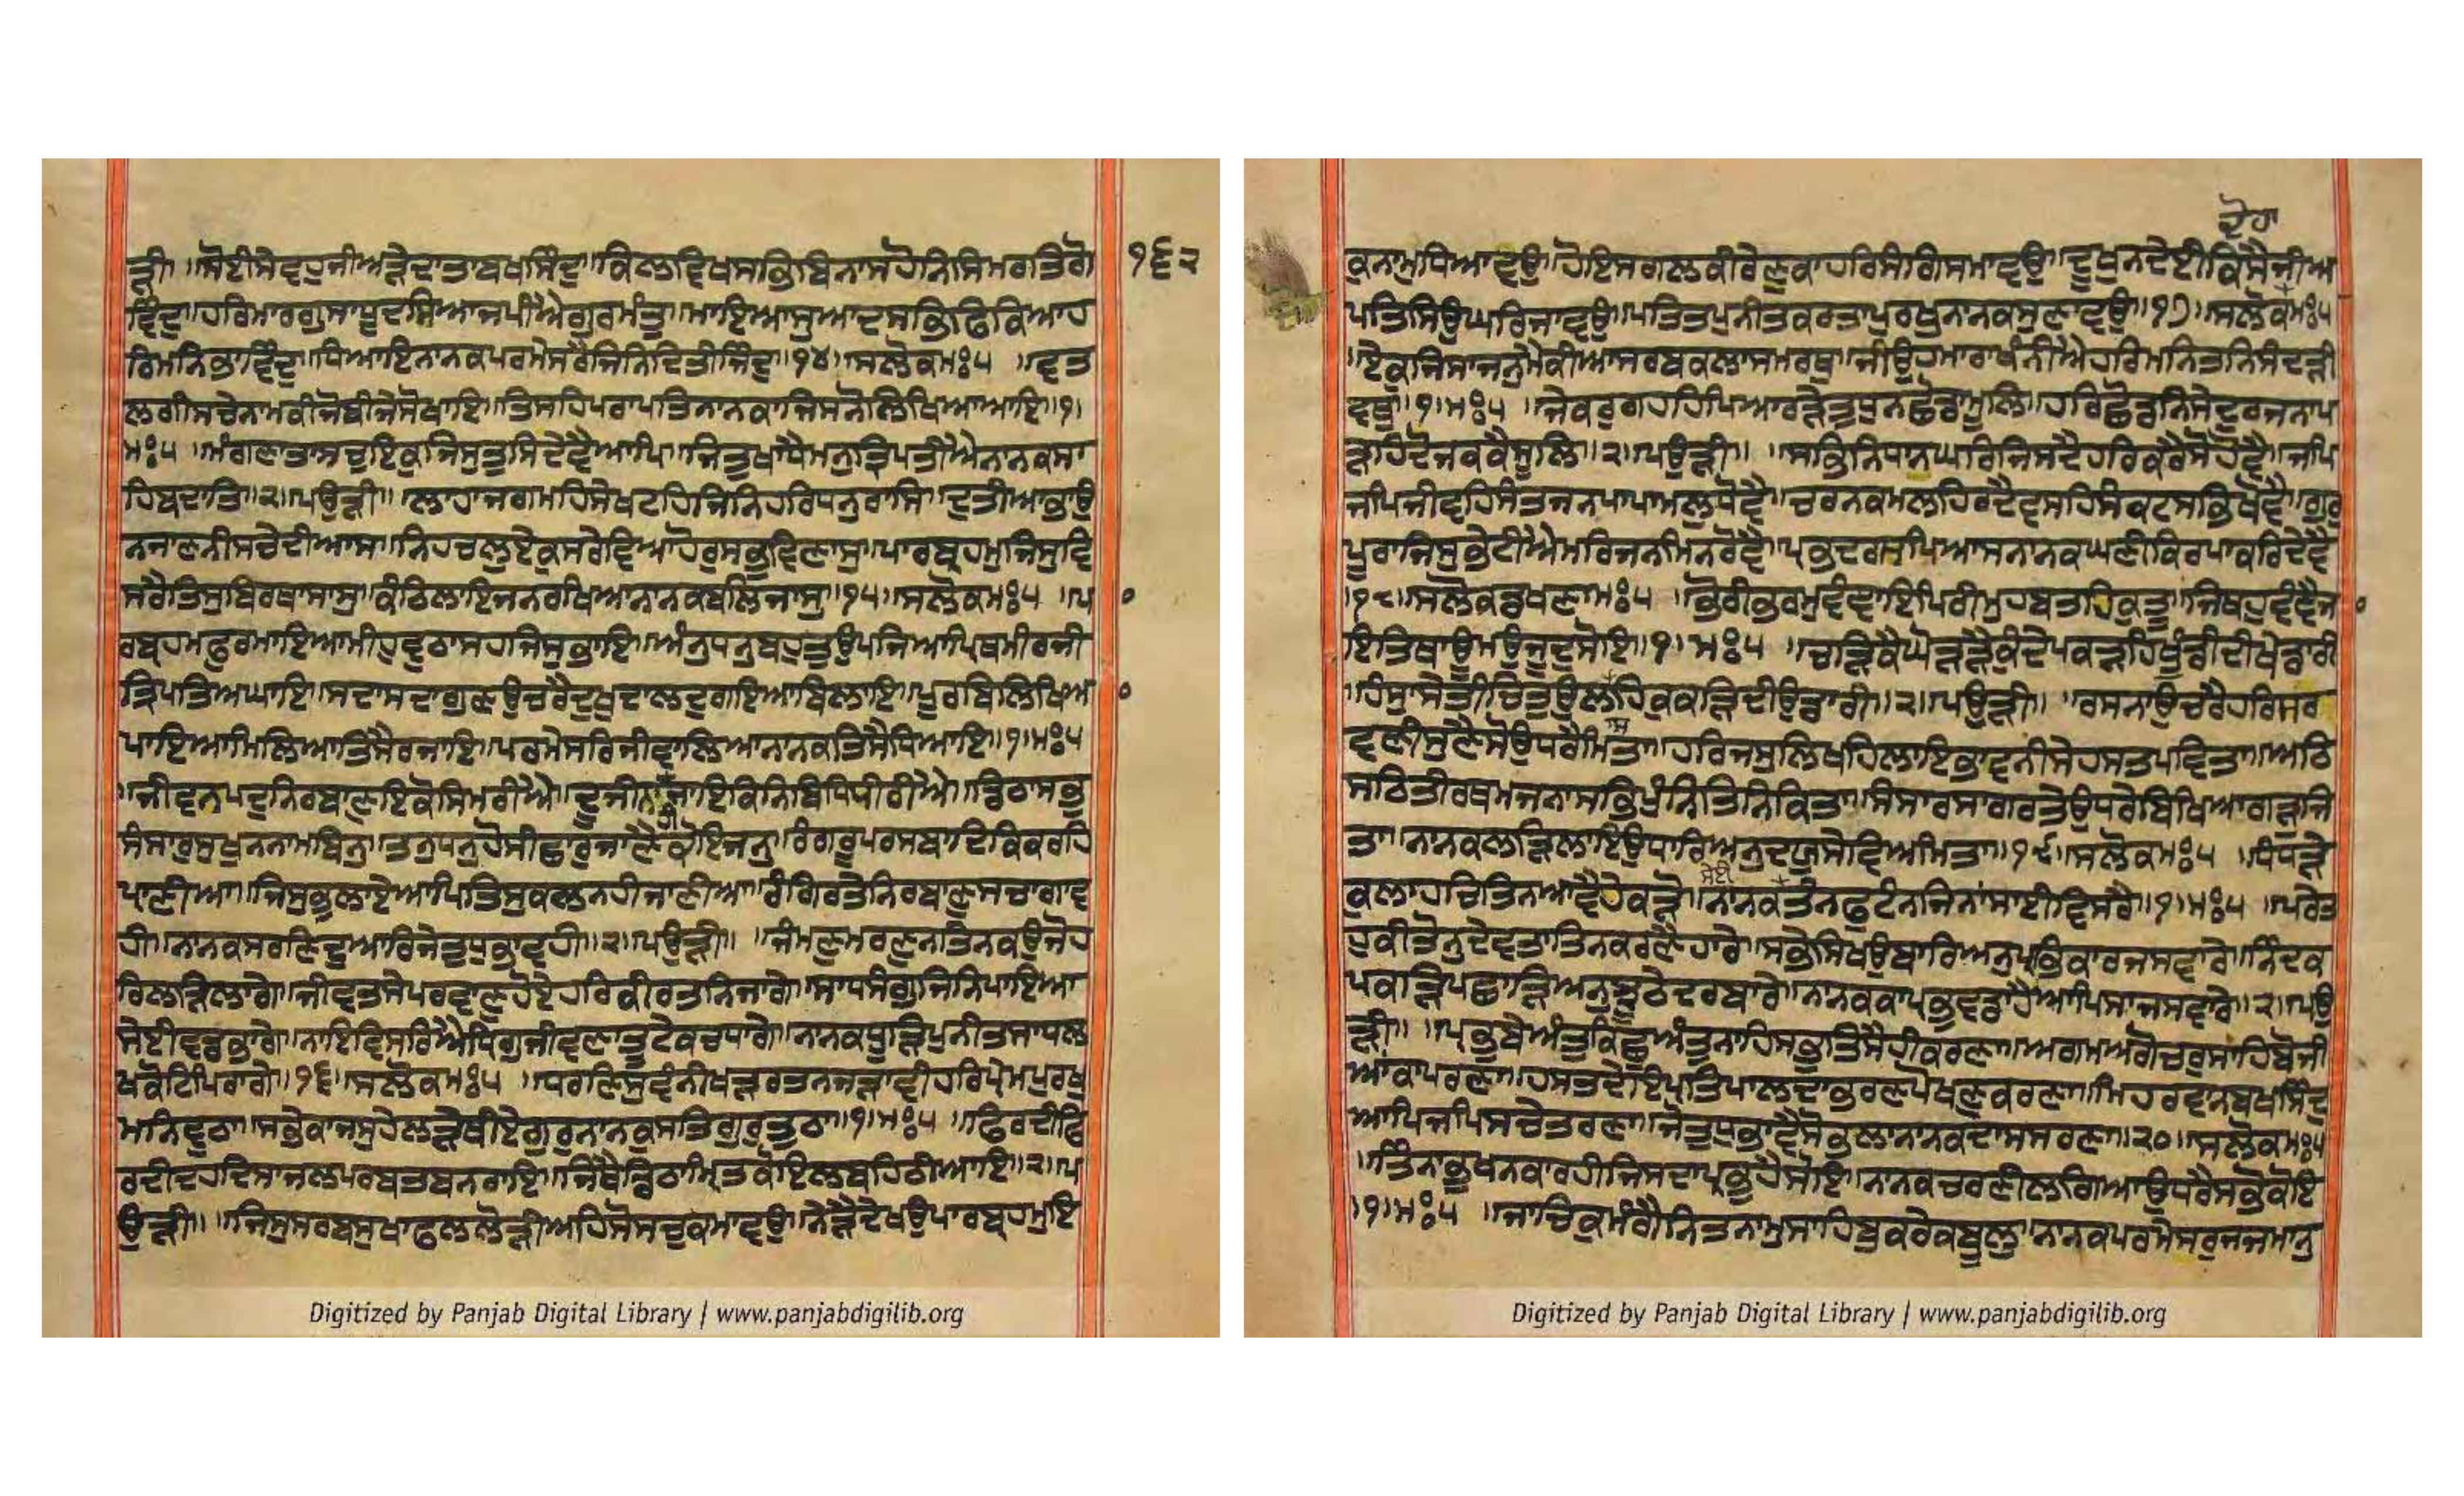 ੜੀ॥ ਸੋਈਸੇਵਹੁਜੀਅੜੇਦਾਤਾਬਖਸਿੰਦੁ॥ਕਿਲਵਿਖਸਭਿਬਿਨਾਸਹੋਨਿਸਿਮਰਤਿਗੋ
੧੬੨
ਵਿੰਦੁ॥ਹਰਿਮਾਰਗੁਸਾਧੂਦਸਿਆਜਪੀਐਗੁਰਮੰਤੁ॥ਮਾਇਆਸੁਆਦਸਭਿਫਿਕਿਆਹ
ਰਿਮਨਿਭਾਵਿੰਦੁ॥ਧਿਆਇਨਾਨਕਪਰਮੇਸਰੈਜਿਨਿਦਿਤੀਜਿੰਦੁ॥੧੪॥ਸਲੋਕਮਃ੫ ॥ਵਤ
ਲਗੀਸਚੇਨਾਮਕੀਜੋਬੀਜੇਸੋਖਾਇ॥ਤਿਸਹਿਪਰਾਪਤਿਨਾਨਕਾਜਿਸਨੋਲਿਖਿਆਆਇ॥੧॥
ਮਃ੫ ॥ਮੰਗਣਾਤਾਸਚੁਇਕੁਜਿਸੁਤੁਸਿਦੇਵੈਆਪਿ॥ਜਿਤੁਖਾਧੈਮਨੁਤ੍ਰਿਪਤੀਐਨਾਨਕਸਾ
ਹਿਬਦਾਤਿ॥੨॥ਪਉੜੀ॥ ਲਾਹਾਜਗਮਹਿਸੇਖਟਹਿਜਿਨਿਹਰਿਧਨੁਰਾਸਿ॥ਦੁਤੀਆਭਾਉ
ਨਜਾਣਨੀਸਚੇਦੀਆਸ॥ਨਿਹਚਲੁਏਕੁਸਰੇਵਿਆਹੋਰੁਸਭਵਿਣਾਸੁ॥ਪਾਰਬ੍ਰਹਮੁਜਿਸੁਵਿ
ਸਰੈਤਿਸੁਬਿਰਥਾਸਾਸੁ॥ਕੰਠਿਲਾਇਜਨਰਖਿਆਨਾਨਕਬਲਿਜਾਸੁ॥੧੫॥ਸਲੋਕਮਃ੫ ॥ਪਾ
ਰਬ੍ਰਹਮਫੁਰਮਾਇਆਮੀਹੁਵੁਠਾਸਹਜਿਸੁਭਾਇ॥ਅੰਨੁਧਨੁਬਹੁਤੁਉਪਜਿਆਪ੍ਰਿਥਮੀਰਜੀ
ਤ੍ਰਿਪਤਿਅਘਾਇ॥ਸਦਾਸਦਾਗੁਣਉਚਰੈਦੁਖੁਦਾਲਦੁਗਇਆਬਿਲਾਇ॥ਪੂਰਬਿਲਿਖਿਆ
ਪਾਇਆਮਿਲਿਆਤਿਸੈਰਜਾਇ॥ਪਰਮੇਸਰਿਜੀਵਾਲਿਆਨਾਨਕਤਿਸੈਧਿਆਇ॥੧॥ਮਃ੫
॥ਜੀਵਨਪਦੁਨਿਰਬਾਣੁਇਕੋਸਿਮਰੀਐ॥ਦੂਜੀਨਾਜਾਇਕਿਨਿਬਿਧਿਧੀਰੀਐ॥ਡਿਠਾਸਭੁ
ਸੰਸਾਰੁਸੁਖੁਨਨਾਮਬਿਨੁ॥ਤਨੁਧਨੁਹੋਸੀਛਾਰੁਜਾਣੈਕੋਇਜਨੁ॥ਰੰਗਰੂਪਰਸਬਾਦਿਕਿਕਰਹਿ
ਪ੍ਰਾਣੀਆ॥ਜਿਸੁਭੁਲਾਏਆਪਿਤਿਸੁਕਲਨਹੀਜਾਣੀਆ॥ਰੰਗਿਰਤੇਨਿਰਬਾਣੁਸਚਾਗਾਵ
ਹੀ॥ਨਾਨਕਸਰਣਿਦੁਆਰਿਜੇਤੁਧੁਭਾਵਹੀ॥੨॥ਪਉੜੀ॥ ॥ਜੰਮਣੁਮਰਣੁਨਤਿਨਕਉਜੋਹ
ਰਿਲੜਿਲਾਗੇ॥ਜੀਵਤਸੇਪਰਵਾਣੁਹੋਏਹਰਿਕੀਰਤਨਿਜਾਗੇ॥ਸਾਧਸੰਗੁਜਿਨਿਪਾਇਆ
ਸੇਈਵਡਭਾਗੇ॥ਨਾਇਵਿਸਰਿਐਧ੍ਰਿਗੁਜੀਵਣਾਤੂਟੇਕਚਧਾਗੇ॥ਨਾਨਕਧੂੜਿਪੁਨੀਤਸਾਧਲ
ਖਕੋਟਿਪਿਰਾਗੇ॥੧੬॥ਸਲੋਕਮਃ੫ ॥ਧਰਣਿਸੁਵੰਨੀਖੜਰਤਨਜੜਾਵੀਹਰਿਪ੍ਰੇਮਪੁਰਖੁ
ਮਨਿਵੁਠਾ॥ਸਭੇਕਾਜਸੁਹੇਲੜੇਥੀਏਗੁਰੁਨਾਨਕੁਸਤਿਗੁਰੁਤੁਠਾ॥੧॥ਮਃ੫ ॥ਫਿਰਦੀਫਿ
ਰਦੀਦਹਦਿਸਾਜਲਪਰਬਤਬਨਰਾਇ॥ਜਿਥੈਡਿਠਾਮਿਰਤਕੋਇਲਬਹਿਠੀਆਇ॥੨॥ਪ
ਉੜੀ॥ ॥ਜਿਸੁਸਰਬਸੁਖਾਫਲਲੋੜੀਅਹਿਸੋਸਚੁਕਮਾਵਉ॥ਨੇੜੈਦੇਖਉਪਾਰਬ੍ਰਹਮੁਇ
Digitized by Panjab Digital Library | www.panjabdigilib.org
ਕਨਾਮੁਧਿਆਵਉ॥ਹੋਇਸਗਲਕੀਰੇਣੁਕਾਹਰਿਸੰਗਿਸਮਾਵਉ॥ਦੂਖੁਨਦੇਈਕਿਸੈਜੀਅ
ਪਤਿਸਿਉਘਰਿਜਾਵਉ॥ਪਤਿਤਪੁਨੀਤਕਰਤਾਪੁਰਖੁਨਾਨਕਸੁਣਾਵਉ॥੧੭॥ਸਲੋਕਮਃ੫
॥ਏਕੁਜਿਸਾਜਨੁਮੈਕੀਆਸਰਬਕਲਾਸਮਰਥੁ॥ਜੀਉਹਮਾਰਾਖੰਨੀਐਹਰਿਮਨਿਤਨਿਸੰਦੜੀ
ਵਥੁ॥੧॥ਮਃ੫ ॥ਜੇਕਰੁਗਹਹਿਪਿਆਰੜੇਤੁਧੁਨਛੋਡਾਮੂਲਿ॥ਹਰਿਛੋਡਨਿਸੇਦੁਰਜਨਾਪ
ੜਹਿਦੋਜਕਕੈਸੂਲਿ॥੨॥ਪਉੜੀ॥ ॥ਸਭਿਨਿਧਾਨਘਰਿਜਿਸਦੈਹਰਿਕਰੈਸੋਹੋਵੈ॥ਜਪਿ
ਜਪਿਜੀਵਹਿਸੰਤਜਨਪਾਪਾਮਲੁਧੋਵੈ॥ਚਰਨਕਮਲਹਿਰਦੈਵਸਹਿਸੰਕਟਸਭਿਖੋਵੈ॥ਗੁਰੁ
ਪੂਰਾਜਿਸੁਭੇਟੀਐਮਰਿਜਨਮਿਨਰੋਵੈ॥ਪ੍ਰਭਦਰਸਪਿਆਸਨਾਨਕਘਣੀਕਿਰਪਾਕਰਿਦੇਵੈ
॥੧੮॥ਸਲੋਕਡਖਣਾਮਃ੫ ॥ਭੋਰੀਭਰਮੁਵੰਞਾਇਪਿਰੀਮੁਹਬਤਹਿਕੁਤੂ॥ਜਿਥਹੁਵੰਞੈਜਾ
ਇਤਿਥਾਊਮਉਜੂਦੁਸੋਇ॥੧॥ਮਃ੫ ॥ਚੜਿਕੈਘੋੜੜੈਕੁੰਦੇਪਕੜਹਿਖੂੰਡੀਦੀਖੇਡਾਰੀ
॥ਹੰਸਾਸੇਤੀਚਿਤੁਉਲਾਸਹਿਕੁਕੜਿਦੀਉਡਾਰੀ॥੨॥ਪਉੜੀ॥ ॥ਰਸਨਾਉਚਰੈਹਰਿਸ੍ਰ
ਵਣੀਸੁਣੈਸੋਉਧਰੈਮਿਤਾ॥ਹਰਿਜਸੁਲਿਖਹਿਲਾਇਭਾਵਨੀਸੇਹਸਤਪਵਿਤਾ॥ਅਠਿ
ਸਠਿਤੀਰਥਮਜਨਾਸਭਿਪੁੰਨਿਤਿਨਿਕਿਤਾ॥ਸੰਸਾਰਸਾਗਰਤੇਉਧਰੇਬਿਖਿਆਗੜੁਜਿ
ਤਾ॥ਨਾਨਕਲੜਿਲਾਇਉਧਾਰਿਅਨੁਦਯੁਸੇਵਿਅਮਿਤਾ॥੧੯॥ਸਲੋਕਮਃ੫ ॥ਧੰਧੜੇ
ਕੁਲਾਹਚਿਤਿਨਆਵੈਹੇਕੜੋ॥ਨਾਨਕਤੰਨਫੁਟੰਨਜਿਨਾਸਾਈਵਿਸਰੈ॥੧॥ਮਃ੫ ॥ਪਰੇਤ
ਸੇਈ
ਹੁਕੀਤੋਨੁਦੇਵਤਾਤਿਨਕਰਣੈਹਾਰੇ॥ਸਭੇਸਿਖਉਬਾਰਿਅਨੁਪ੍ਰਭਿਕਾਜਸਵਾਰੇ॥ਨਿੰਦਕ
ਪਕੜਿਪਛਾੜਿਅਨੁਝੂਠੇਦਰਬਾਰੇ॥ਨਾਨਕਕਾਪ੍ਰਭੁਵਡਾਹੈਆਪਿਸਾਜਸਵਾਰੇ॥੨॥ਪਉ
ੜੀ॥ ॥ਪ੍ਰਭੁਬੇਅੰਤੁਕਿਛੁਅੰਤੁਨਾਹਿਸਭੁਤਿਸੈਹੀਕਰਣਾ॥ਅਗਮਅਗੋਚਰੁਸਾਹਿਬੋਜੀ
ਆਂਕਾਪਰਣਾ॥ਹਸਤਦੇਇਪ੍ਰਤਿਪਾਲਦਾਭਰਣਪੋਖਣੁਕਰਣਾ॥ਮਿਹਰਵਾਨੁਬਖਸਿੰਦੁ
ਆਪਿਜਪਿਸਚੇਤਰਣਾ॥ਜੋਤੁਧੁਭਾਵੈਸੋਭਲਾਨਾਨਕਦਾਸਸਰਣਾ॥੨੦॥ਸਲੋਕਮਃ੫
॥ਤਿੰਨਾਭੁਖਨਕਾਰਹੀਜਿਸਦਾਪ੍ਰਭੁਹੈਸੋਇ॥ਨਾਨਕਚਰਣੀਲਗਿਆਉਧਰੈਸਭੋਕੋਇ
॥੧॥ਮਃ੫ ॥ਜਾਚਿਕੁਮੰਗੈਨਿਤਨਾਮੁਸਾਹਿਬੁਕਰੇਕਬੂਲੁ॥ਨਾਨਕਪਰਮੇਸਰੁਜਜਮਾਨੁ
Digitized by Panjab Digital Library | www.panjabdigilib.org